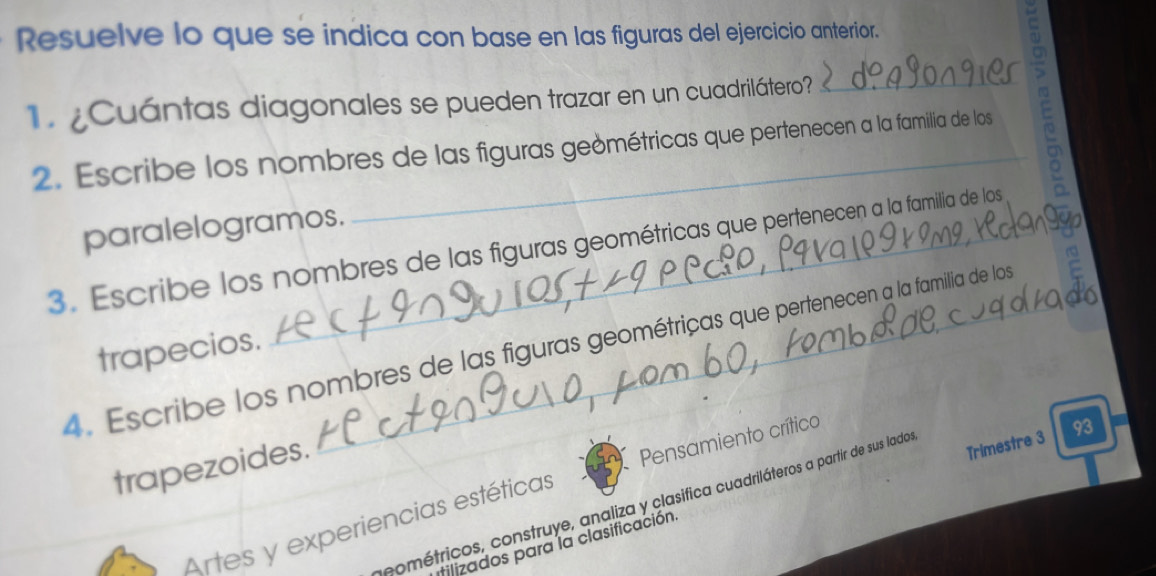 Resuelve lo que se indica con base en las figuras del ejercicio anterior.
1. ¿Cuántas diagonales se pueden trazar en un cuadrilátero? 2
2. Escribe los nombres de las figuras geométricas que pertenecen a la familia de los
paralelogramos.
3. Escribe los nombres de las figuras geométricas que pertenecen a la familia de los
trapecios. rectangulos, trapecio, paralegramo, rectangulo
4. Escribe los nombres de las figuras geométricas que pertenecen a la familia de los
trapezoides. rectangulo, rombo, romboide, cuadrado
Artes y experiencias estéticas
Pensamiento crítico
geométricos, construye, analiza y clasifica cuadriláteros a partir de sus lados,
utilizados para la clasificación.
Trimestre 3
93
programa vigente